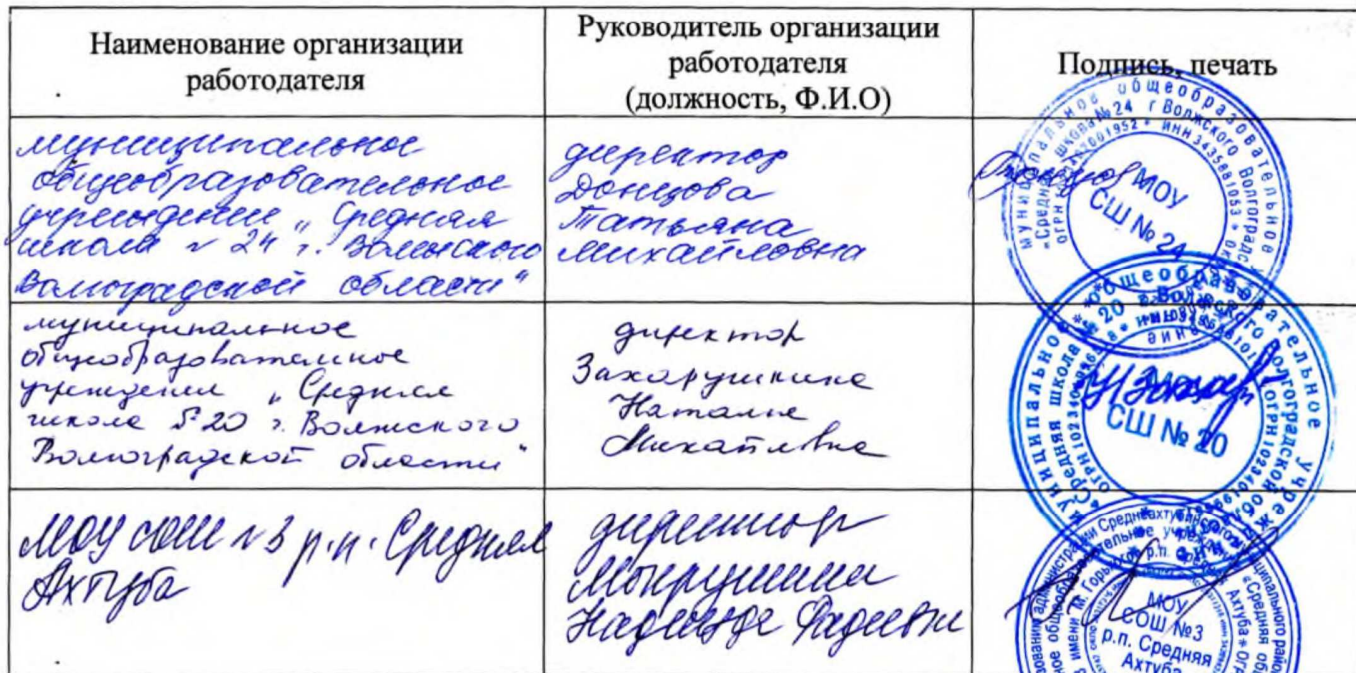 Наименование организации
работодателя
Руководитель организации
работодателя
(должность, Ф.И.О)
Подпись, печать
муниципальное
общеобразовательное
учреждение „Средняя
школа № 24 г. Волжского
Волгоградской области“
директор
Донцова
Татьяна
Михайловна
МОУ
СШ № 24
муниципальное
общеобразовательное
учреждение „Средняя
школа № 20 г. Волжского
Волгоградской области“
директор
Захарушкина
Наталья
Михайловна
СШ № 20
МОУ СОШ №3 р.п. Средняя
Ахтуба
директор
Мокрушина
Надежда Фадеевна
МОУ
СОШ №3
р.п. Средняя
Ахтуба